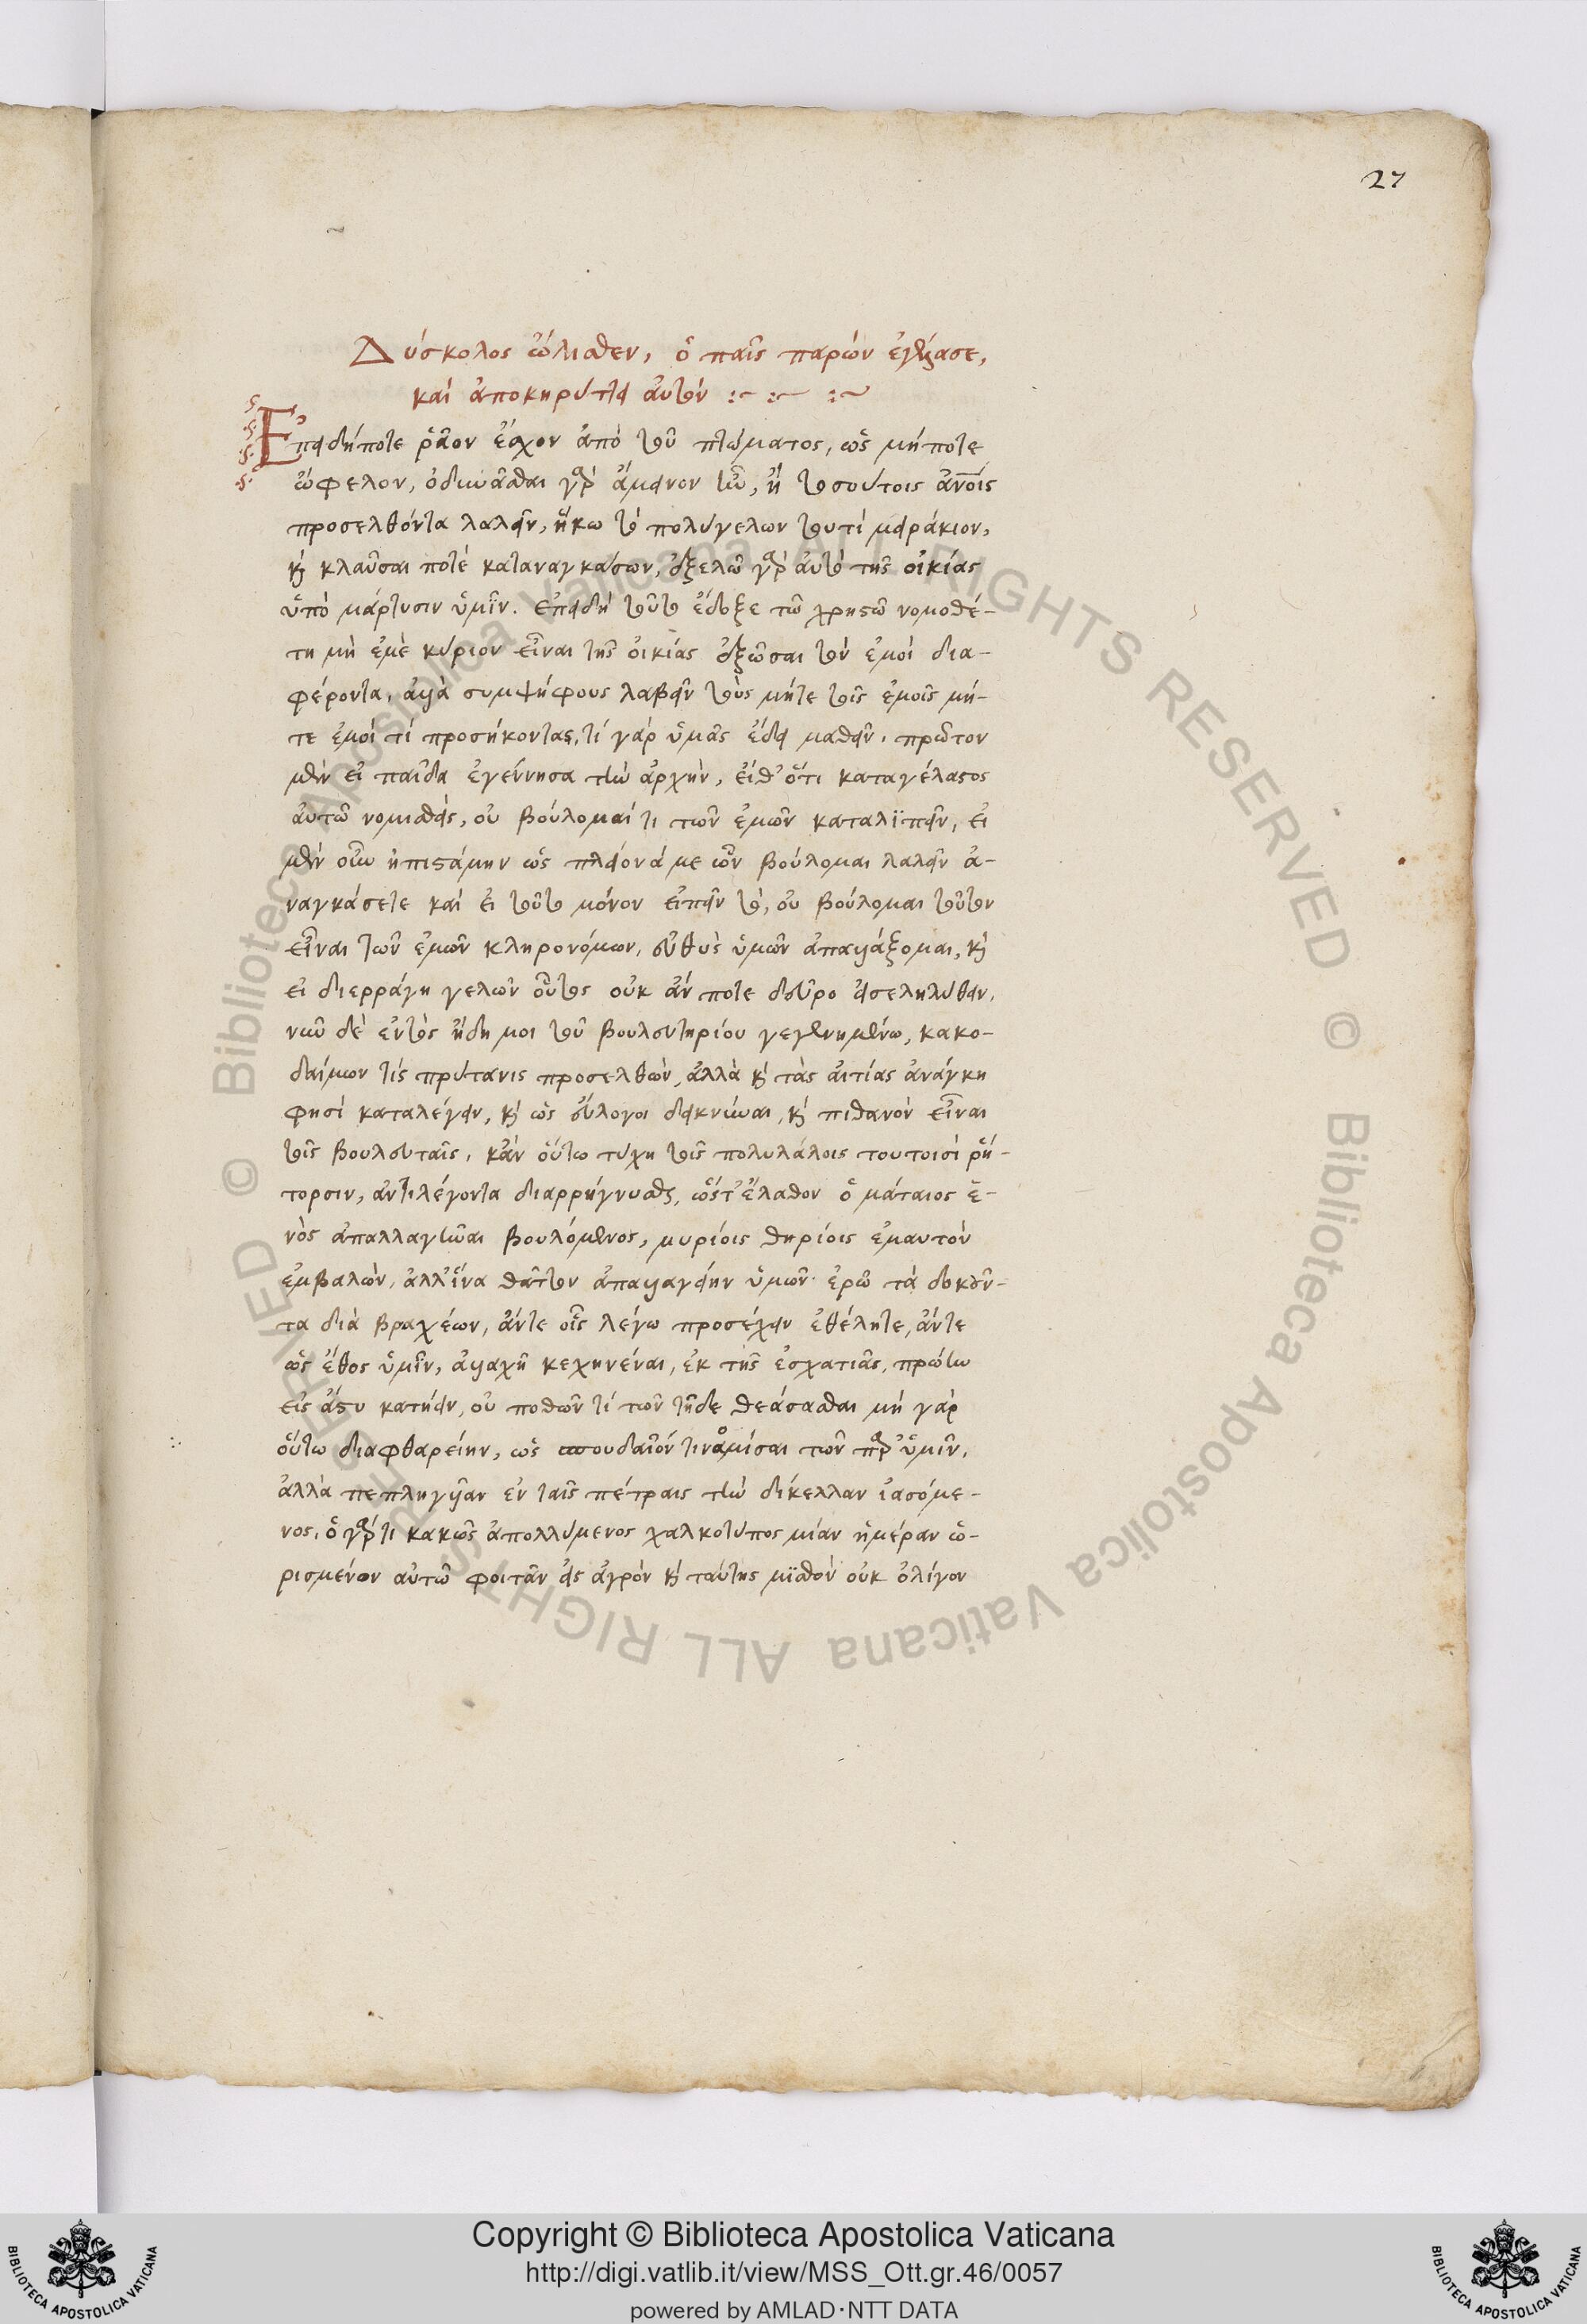 27
Δύσκολος ὤλισθεν, ὁ παῖς παρὼν ἐγέλασε,
καὶ ἀποκηρύττει αὐτόν :~ :~ :~
Ἐπειδήποτε ῥᾷον ἔσχον ἀπὸ τοῦ πτώματος, ὡς μήποτε
ὤφελον, ὀδυνᾶσθαι γὰρ ἄμεινον ἦν, ἢ τοσούτοις ἀνοις
προσελθόντα λαλεῖν, ἥκω τὸ πολύγελων τουτὶ μειράκιον,
καὶ κλαῦσαι ποτὲ καταναγκάσων, ἐξελῶ γὰρ αὐτὸ τῆς οἰκίας
ὑπὸ μάρτυσιν ὑμῖν. ἐπειδὴ τοῦτο ἔδοξε τῷ χρηστῷ νομοθέ-
τῃ μὴ ἐμὲ κύριον εἶναι τῆς οἰκίας ἐξῶσαι τὸν ἐμοὶ δια-
φέροντα, ἀλλὰ συμψήφους λαβεῖν τοὺς μήτε τοῖς ἐμοῖς μή-
τε ἐμοί τι προσήκοντας, τί γὰρ ὑμᾶς ἔδει μαθεῖν. πρῶτον
μὲν εἰ παῖδα ἐγέννησα τὴν ἀρχήν, εἶθ' ὅτι καταγέλαστος
αὐτῷ νομισθεὶς, οὐ βούλομαί τι τῶν ἐμῶν καταλιπεῖν, εἰ
μὲν οὖν ἠπιστάμην ὡς πλείονά με ὧν βούλομαι λαλεῖν ἀ-
ναγκάσετε καὶ εἰ τοῦτο μόνον εἰπεῖν τὸ, οὐ βούλομαι τοῦτον
εἶναι τῶν ἐμῶν κληρονόμων, εὐθὺς ὑμῶν ἀπαλλάξομαι, καὶ
εἰ διερράγη γελῶν οὗτος οὐκ ἄν ποτε δεῦρο εἰσεληλύθειν,
νῦν δὲ ἐντὸς ἤδη μοι τοῦ βουλευτηρίου γεγενημένῳ, κακο-
δαίμων τις πρύτανις προσελθὼν, ἀλλὰ καὶ τὰς αἰτίας ἀνάγκη
φησὶ καταλέγειν, καὶ ὡς εὔλογοι δεικνύναι, καὶ πιθανὸν εἶναι
τοῖς βουλευταῖς, κἂν οὕτω τύχῃ τοῖς πολυλάλοις τουτοισὶ ῥή-
τορσιν, ἀντιλέγοντα διαρρήγνυσθαι, ὥστ' ἔλαθον ὁ μάταιος ἑ-
νὸς ἀπαλλαγῆναι βουλόμενος, μυρίοις θηρίοις ἐμαυτὸν
ἐμβαλών, ἀλλ' ἵνα θᾶττον ἀπαλλαγείην ὑμῶν ἐρῶ τὰ δοκοῦν-
τα διὰ βραχέων, ἄντε οἷς λέγω προσέχειν ἐθέλητε, ἄντε
ὡς ἔθος ὑμῖν, ἀλλαχῆ κεχηνέναι, ἐκ τῆς ἐσχατιᾶς, πρώτω
εἰς ἄστυ κατῄειν, οὐ ποθῶν τι τῶν τῇδε θεάσασθαι μὴ γὰρ
οὕτω διαφθαρείην, ὡς σπουδαῖόν τι νομίσαι τῶν παρ' ὑμῖν,
ἀλλὰ πεπληγυῖαν ἐν ταῖς πέτραις τὴν δίκελλαν ἰασόμε-
νος, ὁ γάρ τι κακῶς ἀπολλύμενος χαλκοτύπος μίαν ἡμέραν ὡ-
ρισμένον αὐτῷ φοιτᾶν εἰς ἀγρὸν καὶ ταύτης μισθὸν οὐκ ὀλίγον
Copyright © Biblioteca Apostolica Vaticana
http://digi.vatlib.it/view/MSS_Ott.gr.46/0057
powered by AMLAD·NTT DATA
BIBLIOTECA APOSTOLICA VATICANA
BIBLIOTECA APOSTOLICA VATICANA
© Biblioteca Apostolica Vaticana ALL RIGHTS RESERVED © Biblioteca Apostolica Vaticana ALL RIGHTS RESERVED